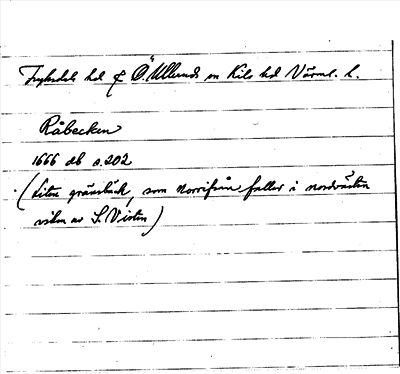 Fryksdals hd f Ö. Ullerud sn Kils hd Värml. l.
Råbecken
1666 db s.202
(Liten gränsbäck, som norrifrån faller i nordvästra
viken av S. Visten)